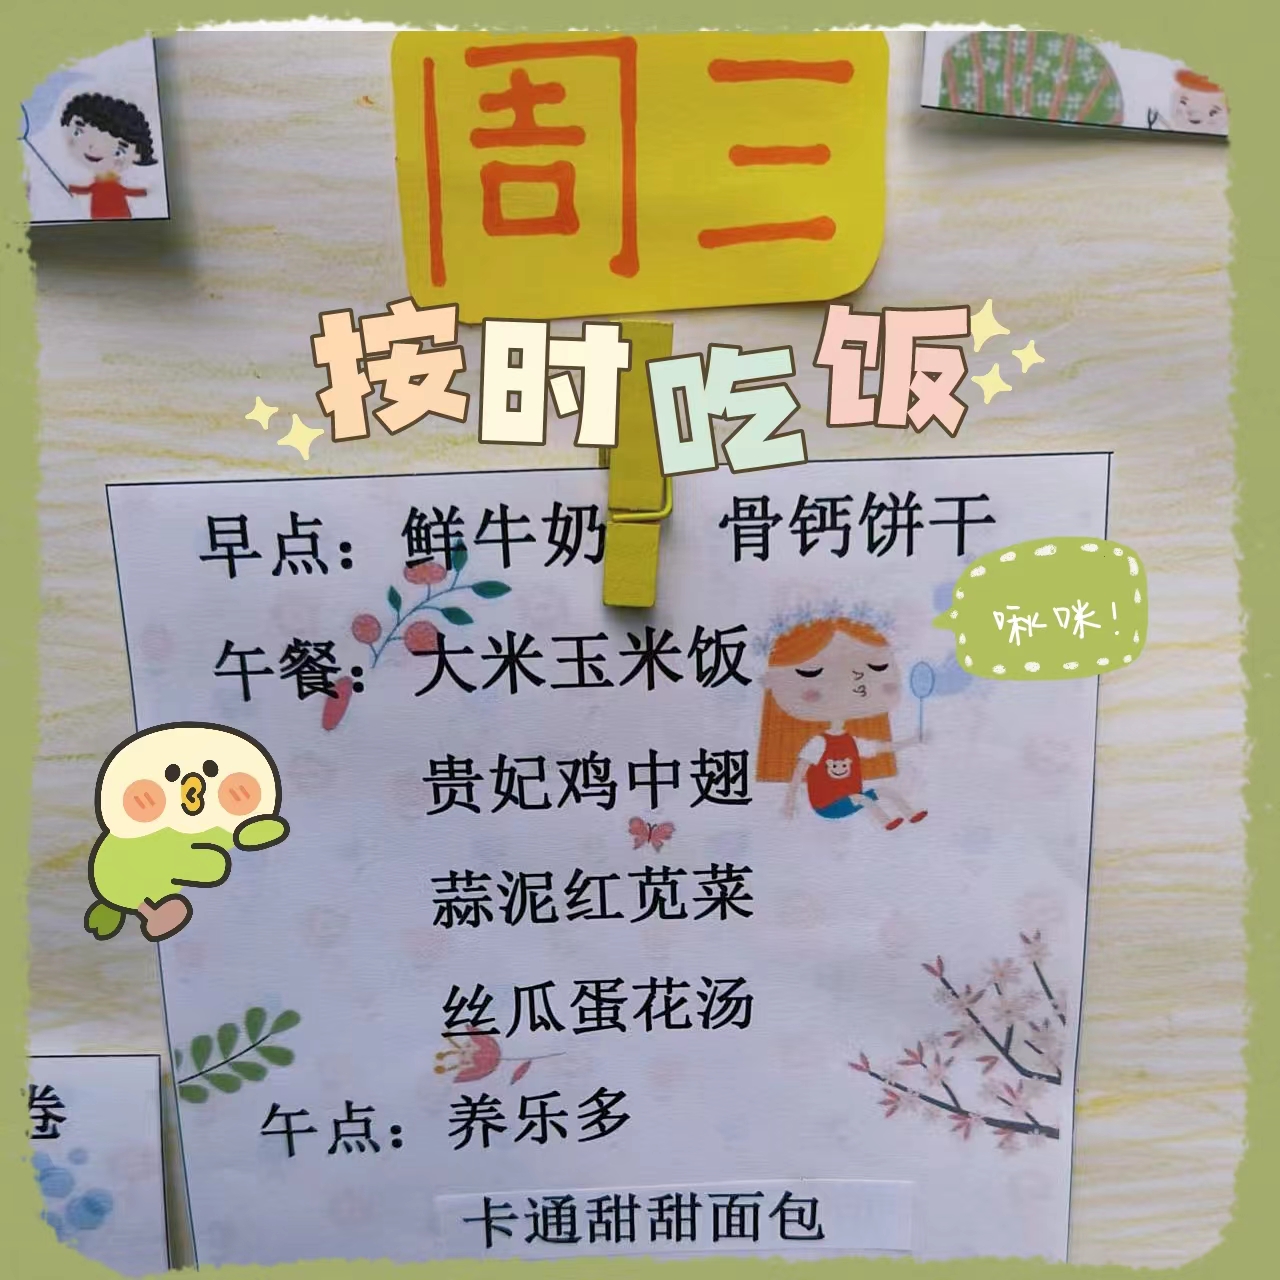 周三
按时吃饭
早点：鲜牛奶 骨钙饼干
啾咪！
午餐：大米玉米饭
贵妃鸡中翅
蒜泥红苋菜
丝瓜蛋花汤
卷
午点：养乐多
卡通甜甜面包